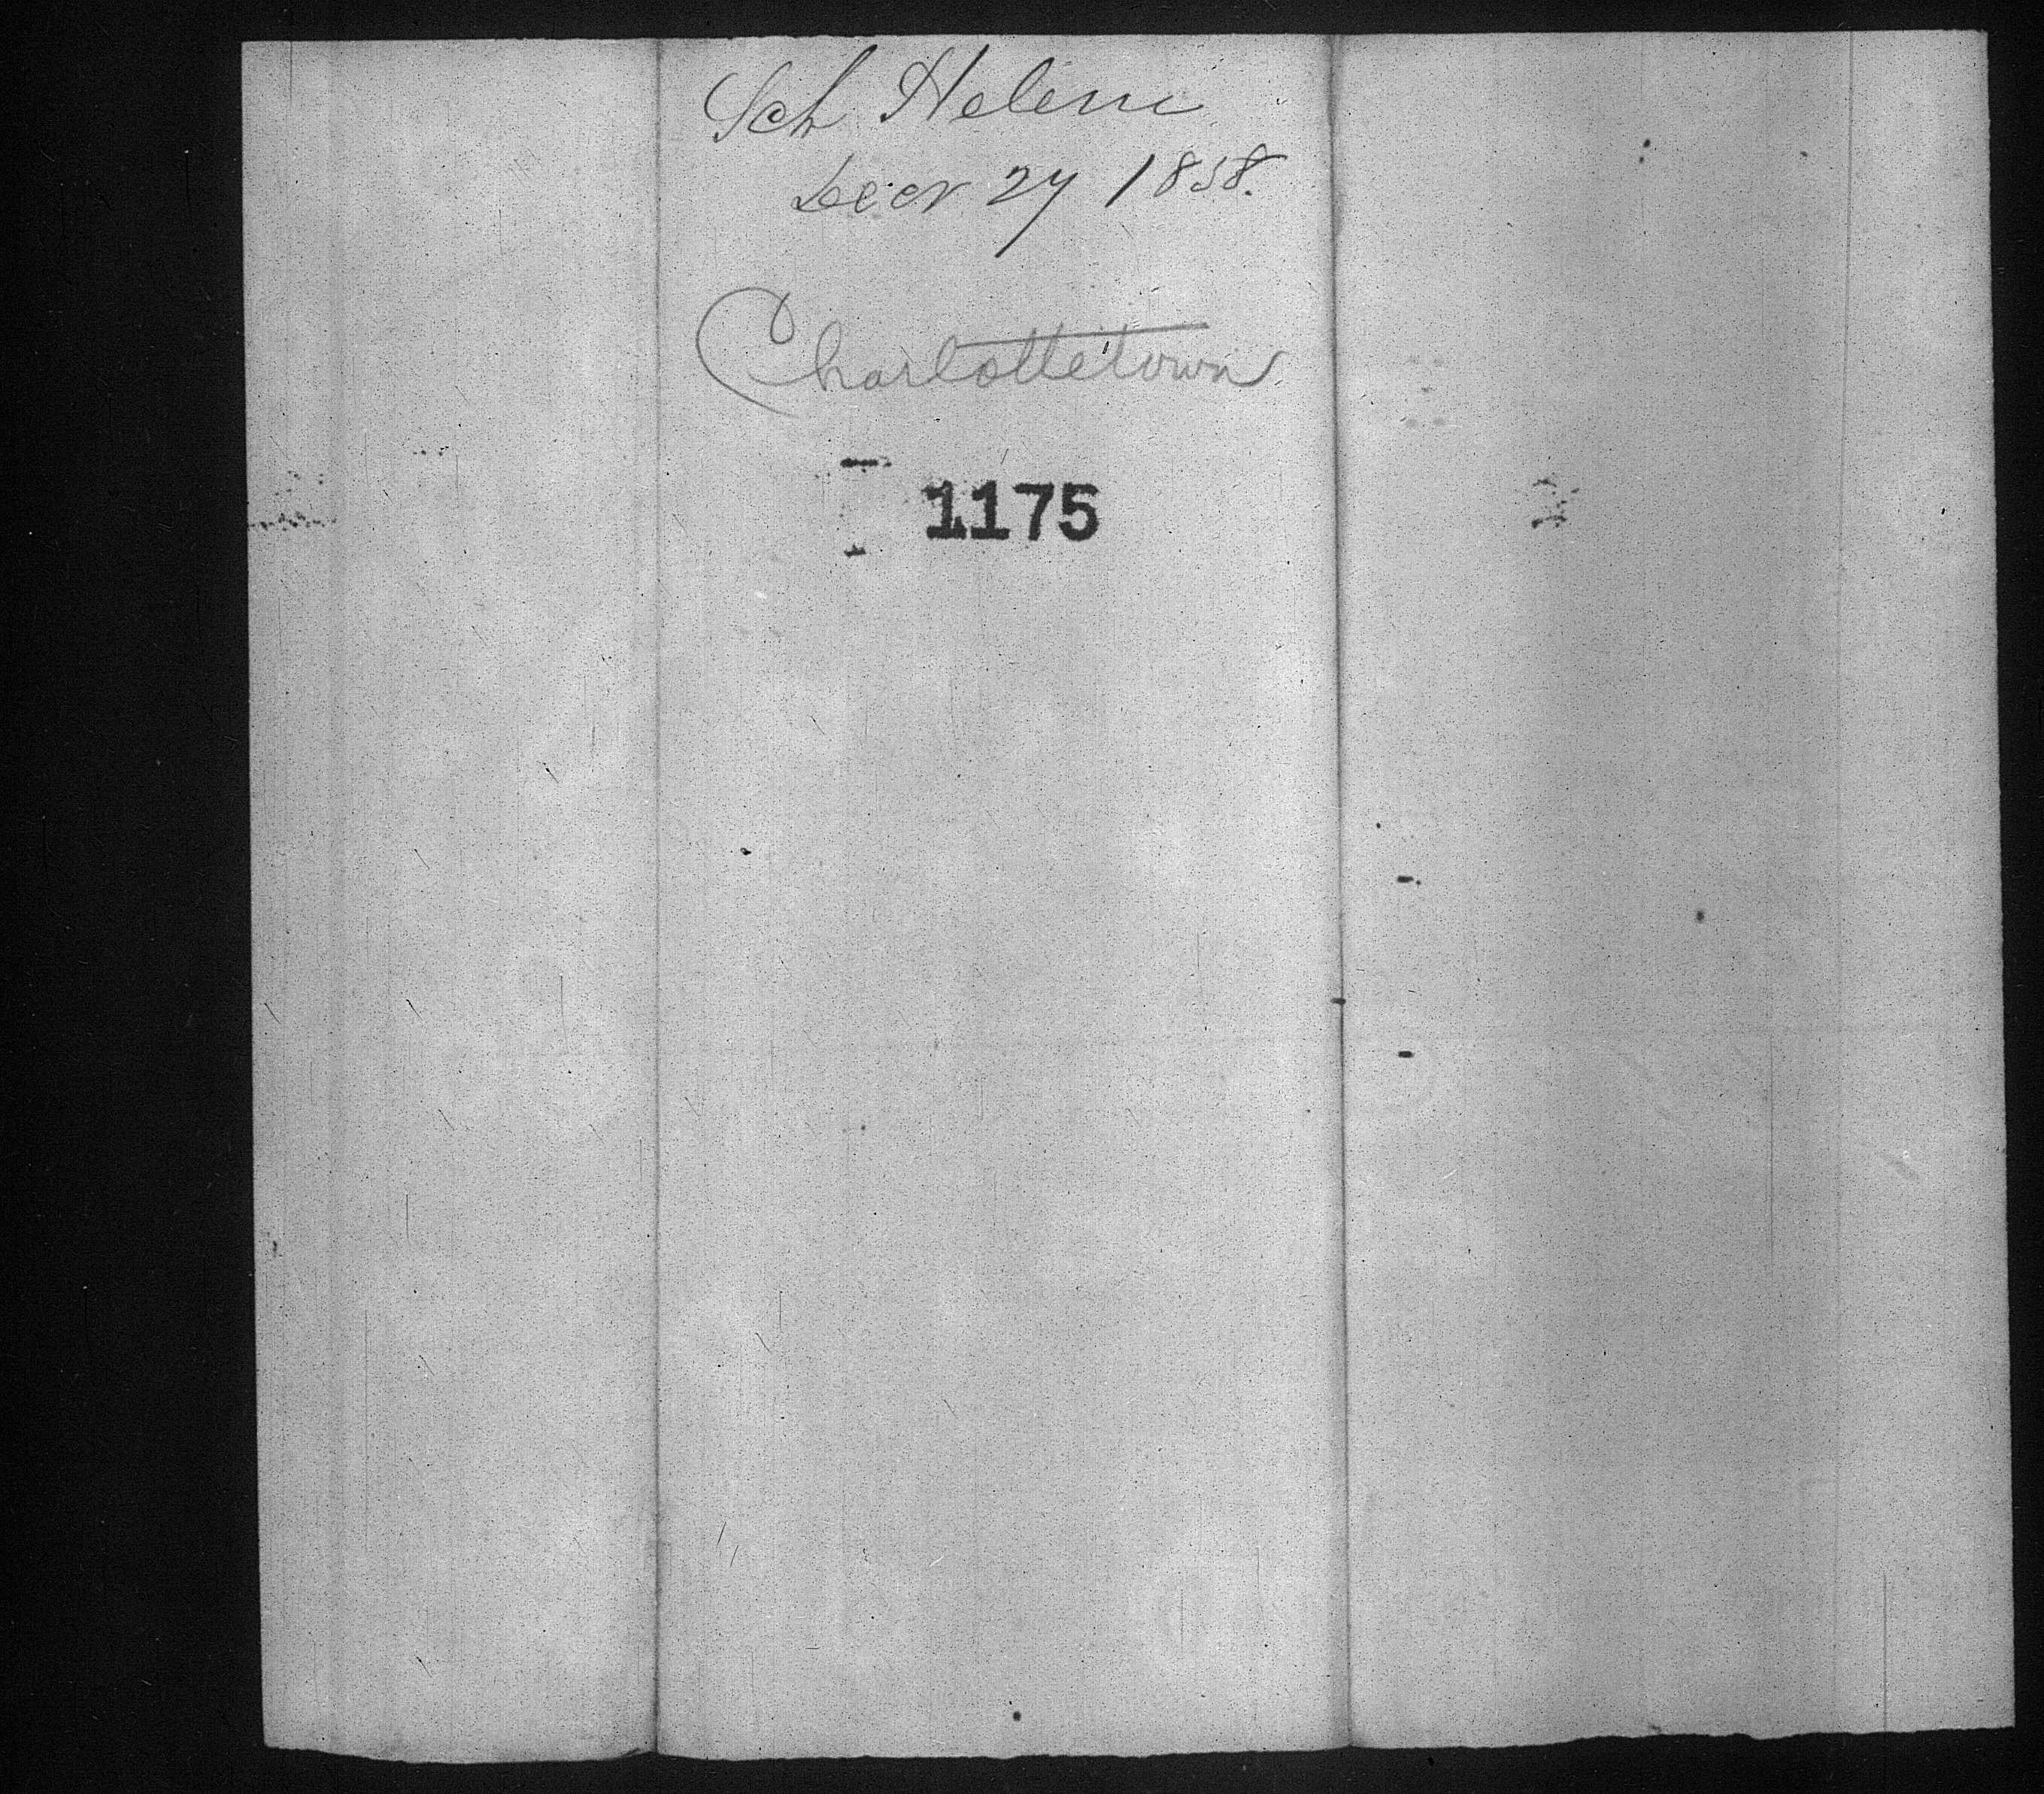 Sch Helene
Decr 27 1858.
Charlottetown
1175